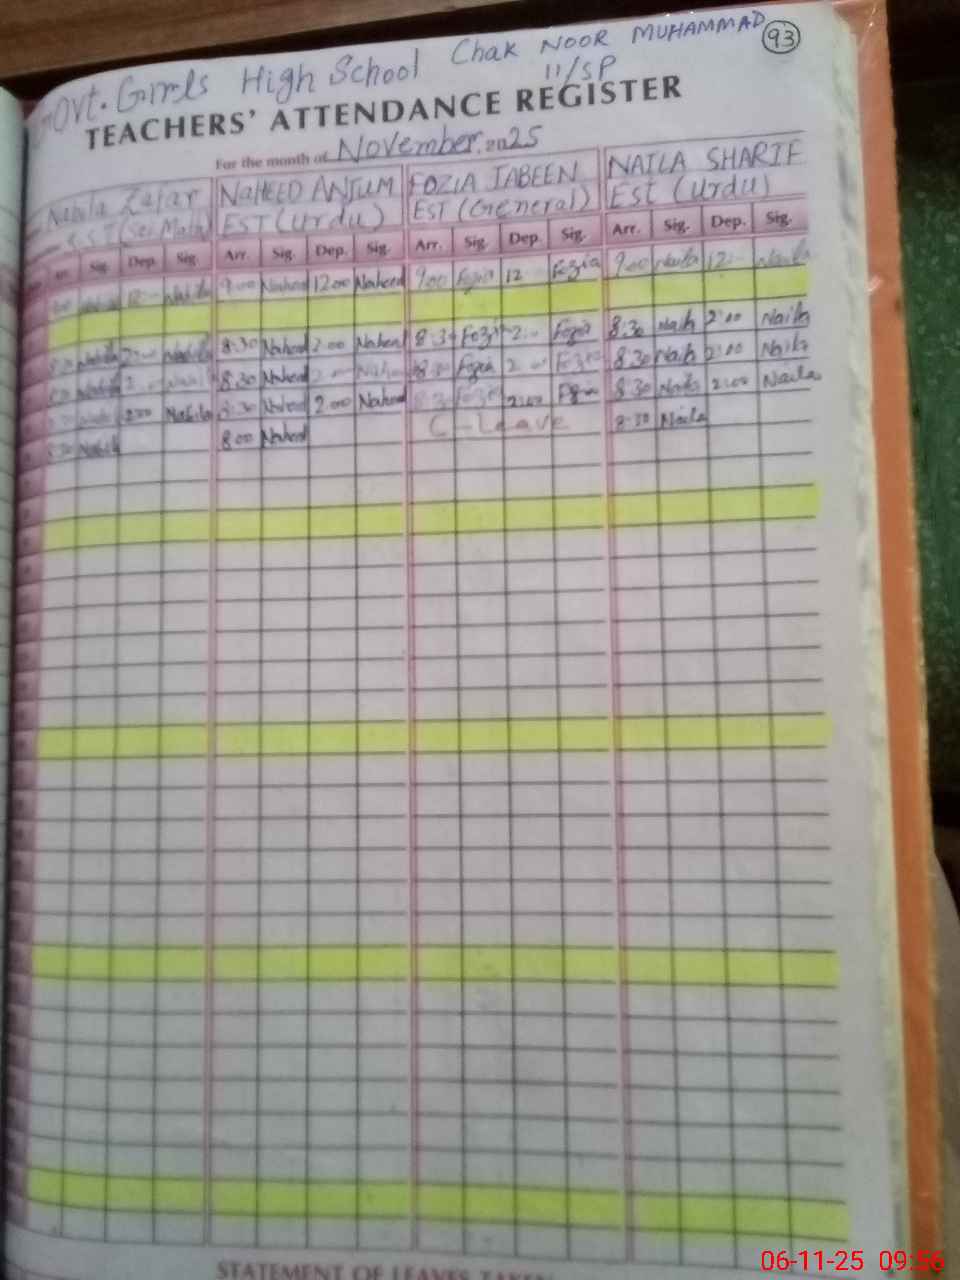 Govt. Girrls High School Chak NOOR MUHAMMAD 93
11/SP
TEACHERS' ATTENDANCE REGISTER
For the month of November, 2025
Nabila Zafar NAHEED ANJUM FOZIA JABEEN NAILA SHARIF
EST (Urdu) EST (General) Est (Urdu)
Arr. Sig. Dep. Sig. Arr. Sig. Dep. Sig. Arr. Sig. Dep. Sig. Arr. Sig. Dep. Sig.
9:00 Naheed 12:00 Naheed 9:00 Fozia 12 Fozia 9:00 Naila 12:- Naila
8:30 Nabila 2:00 Nabila 8:30 Naheed 2:00 Naheed 8:30 Fozia 2:00 Fozia 8:30 Naila 2:00 Naila
8:30 Naheed 2:00 Naheed Fozia 2:00 Fozia 8:30 Naila 2:00 Naila
2:00 Nabila 8:30 Naheed 2:00 Naheed 8:30 Fozia 2:00 8:30 Naila 2:00 Naila
8:30 Nabila 8:00 Naheed C-Leave 8:30 Naila
STATEMENT OF LEAVES TAKEN
06-11-25 09:56